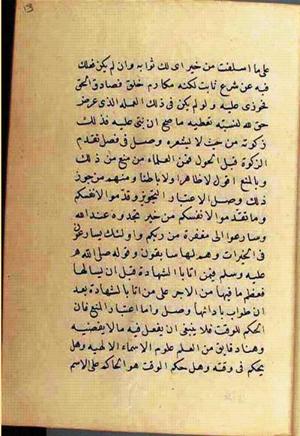 على ما اسلفت من خير اى لك ثوابه وان لم يكن فعلك
فيه عن شرع ثابت لكنه مكارم خلق فصادق الحق
فجوزى عليه ولو لم يكن فى ذلك العمله الذى عرض
حق لله لنسبته تعطيه ما صح ان يثنى عليه فذلك
زكوته من حيث لا يشعر وصل فى فصل تقديم
الزكوة قبل الحول فمن العلماء من منع من ذلك
وبالمنع اقول لا ظاهرا ولا باطنا ومنهم من جوز
ذلك وصل الاعتبار التجويز وقدموا لانفسكم
وما تقدموا لانفسكم من خير تجدوه عند الله
وسارعوا الى مغفرة من ربكم واولئك يسارعون
فى الخيرات وهم لها سابقون وقوله صلى الله
عليه وسلم فيمن اتا بالشهادة قبل ان يسالها
فعظم ما فيها من الاجر على من اتا بالشهادة بعد
ان طولب بادائها وصل واما اعتبار المنع فان
الحكم للوقت فلا ينبغى ان يفعل فيه ما لا يقتضيه
وهنا دقايق من العلم علوم الاسماء الالهية وهل
يحكم فى وقته وهل حكم الوقت هو الحاكم على الاسم